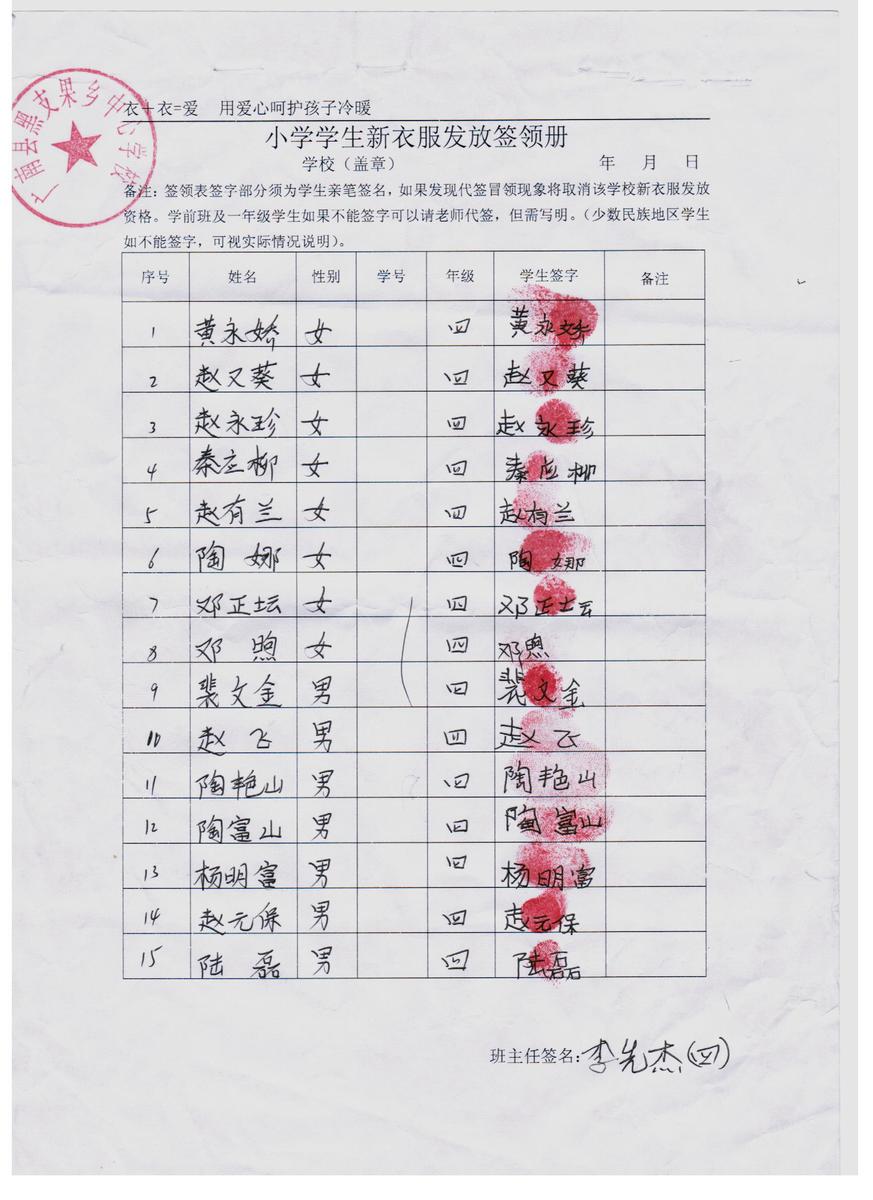 广南县黑支果乡中心学校
衣+衣=爱 用爱心呵护孩子冷暖
小学学生新衣服发放签领册
学校（盖章） 年 月 日
备注：签领表签字部分须为学生亲笔签名，如果发现代签冒领现象将取消该学校新衣服发放
资格。学前班及一年级学生如果不能签字可以请老师代签，但需写明。（少数民族地区学生
如不能签字，可视实际情况说明）。
序号 姓名 性别 学号 年级 学生签字 备注
1 黄永娇 女 四 黄永娇
2 赵又葵 女 四 赵又葵
3 赵永珍 女 四 赵永珍
4 秦应柳 女 四 秦应柳
5 赵有兰 女 四 赵有兰
6 陶娜 女 四 陶娜
7 邓正坛 女 四 邓正坛
8 邓煦 女 四 邓煦
9 裴文金 男 四 裴文金
10 赵飞 男 四 赵飞
11 陶艳山 男 四 陶艳山
12 陶富山 男 四 陶富山
13 杨明富 男 四 杨明富
14 赵元保 男 四 赵元保
15 陆磊 男 四 陆磊
班主任签名：李先杰（四）